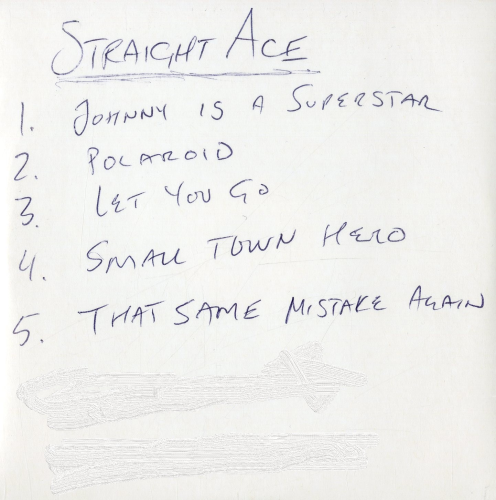 STRAIGHT ACE
1. JOHNNY IS A SUPERSTAR
2. POLAROID
3. LET YOU GO
4. SMALL TOWN HERO
5. THAT SAME MISTAKE AGAIN